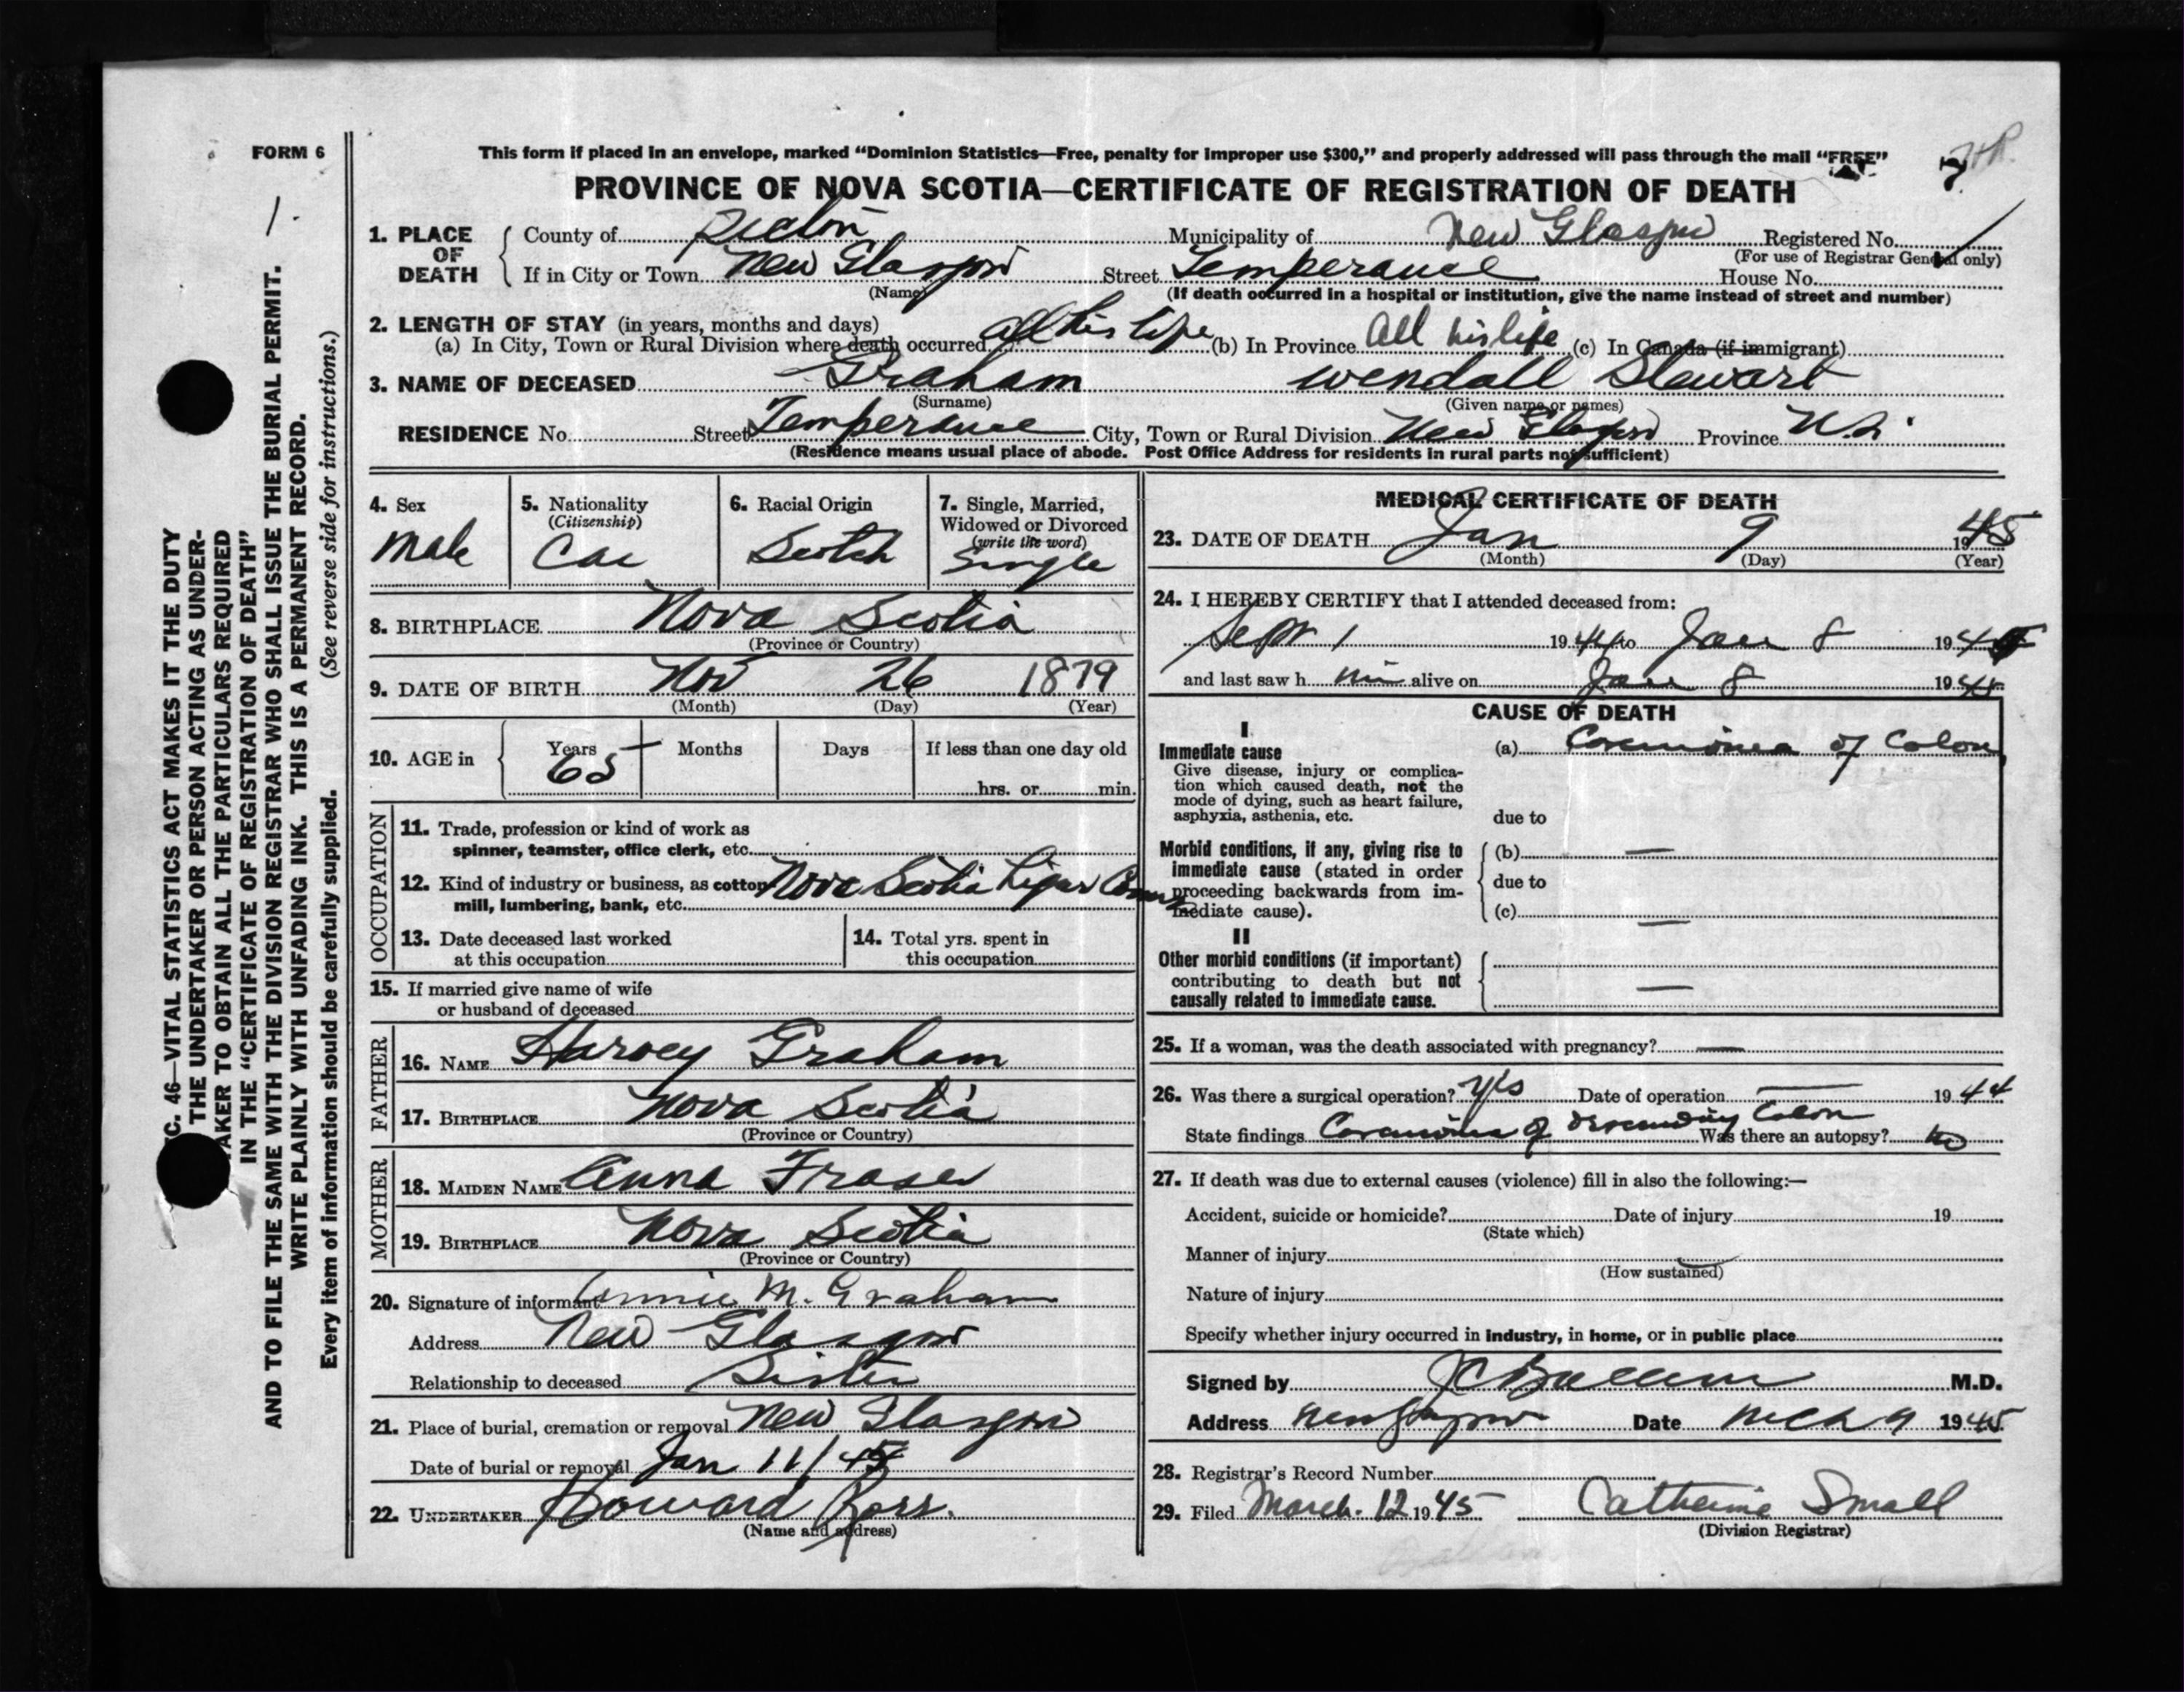 FORM 6
This form if placed in an envelope, marked “Dominion Statistics—Free, penalty for improper use $300,” and properly addressed will pass through the mail “FREE”
PROVINCE OF NOVA SCOTIA—CERTIFICATE OF REGISTRATION OF DEATH
1. PLACE OF DEATH County of Pictou Municipality of New Glasgow Registered No.
(For use of Registrar General only)
If in City or Town New Glasgow Street Temperance House No.
(Name) (If death occurred in a hospital or institution, give the name instead of street and number)
2. LENGTH OF STAY (in years, months and days)
(a) In City, Town or Rural Division where death occurred all his life (b) In Province All his life (c) In Canada (if immigrant)
3. NAME OF DECEASED Graham Wendall Stewart
(Surname) (Given name or names)
RESIDENCE No. Street Temperance City, Town or Rural Division New Glasgow Province N.S.
(Residence means usual place of abode. Post Office Address for residents in rural parts not sufficient)
4. Sex Male
5. Nationality (Citizenship) Can
6. Racial Origin Scotch
7. Single, Married, Widowed or Divorced (write the word) Single
8. BIRTHPLACE Nova Scotia
(Province or Country)
9. DATE OF BIRTH Nov 26 1879
(Month) (Day) (Year)
10. AGE in Years 65 Months Days If less than one day old
hrs. or min.
OCCUPATION
11. Trade, profession or kind of work as
spinner, teamster, office clerk, etc.
12. Kind of industry or business, as cotton
mill, lumbering, bank, etc. Nova Scotia Liquor
13. Date deceased last worked
at this occupation
14. Total yrs. spent in
this occupation
15. If married give name of wife
or husband of deceased
FATHER
16. NAME Harvey Graham
17. BIRTHPLACE Nova Scotia
(Province or Country)
MOTHER
18. MAIDEN NAME Anna Fraser
19. BIRTHPLACE Nova Scotia
(Province or Country)
20. Signature of informant Annie M. Graham
Address New Glasgow
Relationship to deceased Sister
21. Place of burial, cremation or removal New Glasgow
Date of burial or removal Jan 11/45
22. UNDERTAKER Howard Ross.
(Name and address)
MEDICAL CERTIFICATE OF DEATH
23. DATE OF DEATH Jan 9 1945
(Month) (Day) (Year)
24. I HEREBY CERTIFY that I attended deceased from:
Sept 1 1944 to Jan 8 1945
and last saw him alive on Jan 8 19
CAUSE OF DEATH
I
Immediate cause
Give disease, injury or complica-
tion which caused death, not the
mode of dying, such as heart failure,
asphyxia, asthenia, etc.
(a) Carcinoma of Colon
due to
Morbid conditions, if any, giving rise to
immediate cause (stated in order
proceeding backwards from im-
mediate cause).
(b) —
due to
(c) —
II
Other morbid conditions (if important)
contributing to death but not
causally related to immediate cause. —
25. If a woman, was the death associated with pregnancy? —
26. Was there a surgical operation? Yes Date of operation — 1944
State findings Carcinoma of descending Colon Was there an autopsy? No
27. If death was due to external causes (violence) fill in also the following:—
Accident, suicide or homicide? Date of injury 19
(State which)
Manner of injury
(How sustained)
Nature of injury
Specify whether injury occurred in industry, in home, or in public place
Signed by M.D.
Address New Glasgow Date Mch 9 1945
28. Registrar's Record Number
29. Filed March. 12 1945 Catherine Small
(Division Registrar)
C. 46—VITAL STATISTICS ACT MAKES IT THE DUTY
THE UNDERTAKER OR PERSON ACTING AS UNDER-
TAKER TO OBTAIN ALL THE PARTICULARS REQUIRED
IN THE “CERTIFICATE OF REGISTRATION OF DEATH”
AND TO FILE THE SAME WITH THE DIVISION REGISTRAR WHO SHALL ISSUE THE BURIAL PERMIT.
WRITE PLAINLY WITH UNFADING INK. THIS IS A PERMANENT RECORD.
Every item of information should be carefully supplied. (See reverse side for instructions.)